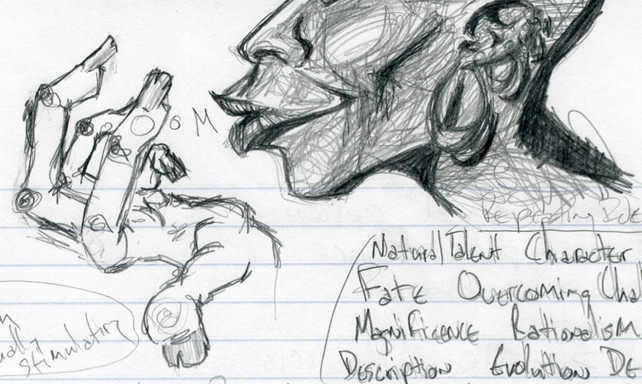 M
Natural Talent Character
Fate Overcoming
Magnificence Rationalism
Description Evolution De
stimulating